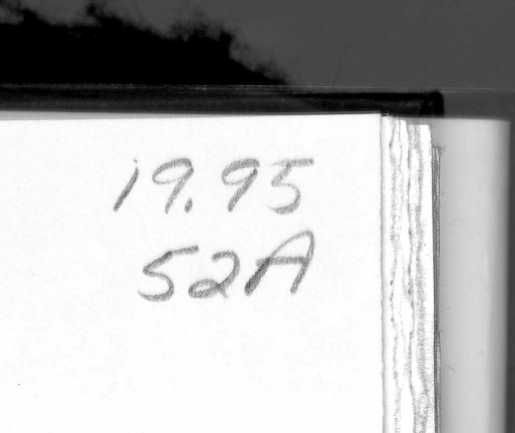 19.95
52A